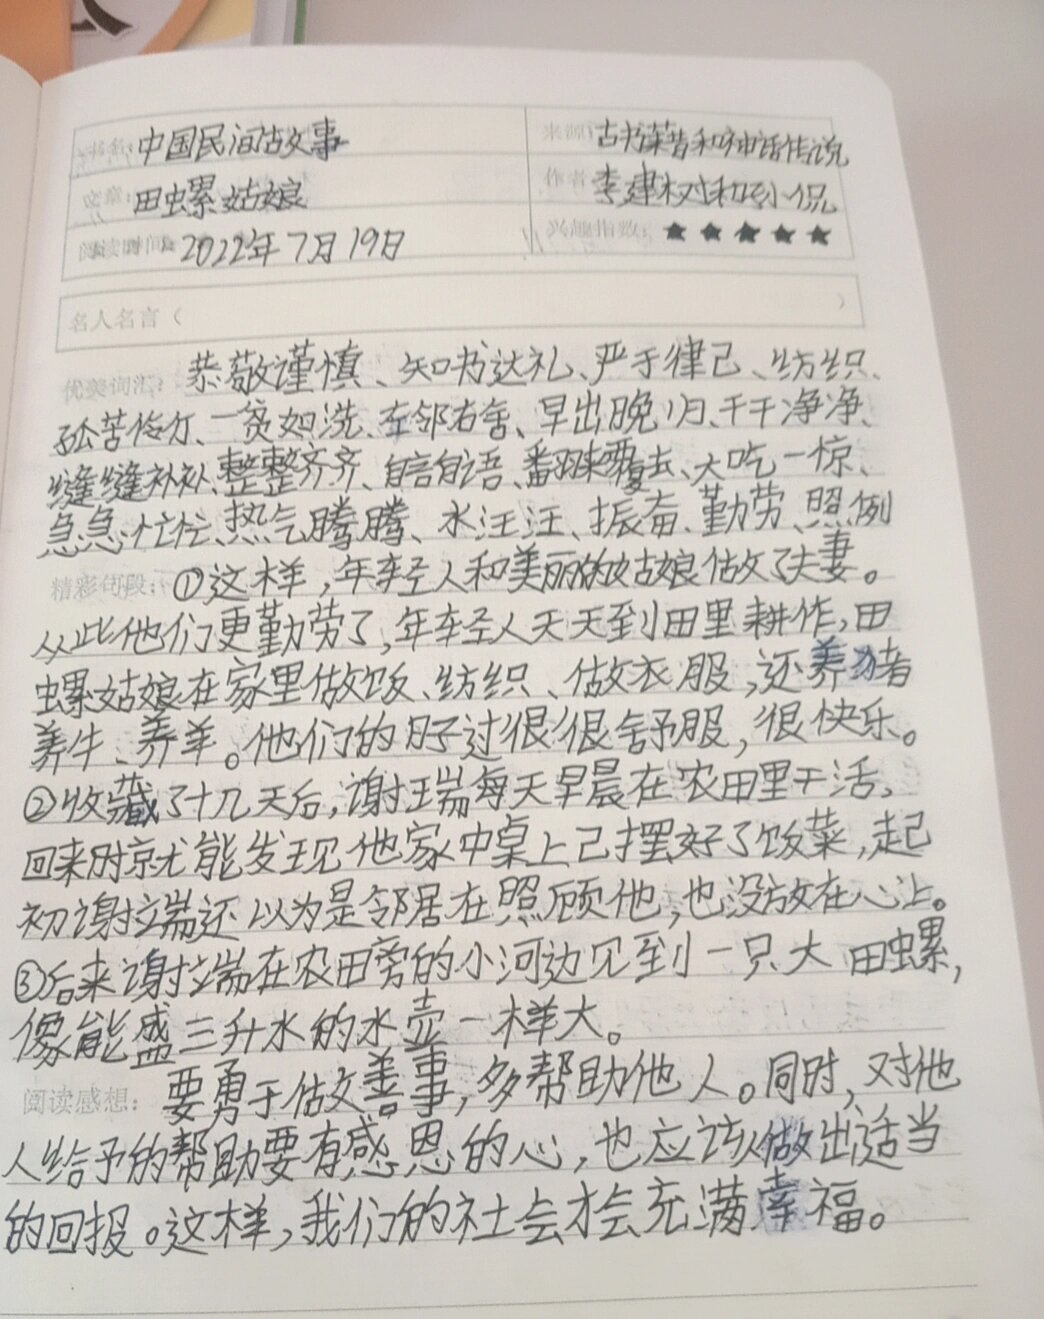 中国民间故事
古书菜昔和神话传说
文章:田螺姑娘
作者 李建树和孙小侃
阅读时间 2022年7月19日
兴趣指数:★★★★★
名人名言( )
优美词汇:恭敬谨慎、知书达礼、严于律己、纺织、
孤苦伶仃、一贫如洗、左邻右舍、早出晚归、干干净净、
缝缝补补、整整齐齐、自言自语、翻来覆去、大吃一惊、
急急忙忙、热气腾腾、水汪汪、振奋、勤劳、照例
精彩句段:①这样,年轻人和美丽的姑娘做了夫妻。
从此他们更勤劳了,年轻人天天到田里耕作,田
螺姑娘在家里做饭、纺织、做衣服,还养猪
养牛、养羊。他们的日子过很很舒服,很快乐。
②收藏了十几天后,谢端每天早晨在农田里干活,
回来时就能发现他家中桌上已摆好了饭菜,起
初谢端还以为是邻居在照顾他,也没放在心上。
③后来谢端在农田旁的小河边见到一只大田螺,
像能盛三升水的水壶一样大。
阅读感想:要勇于做善事,多帮助他人。同时,对他
人给予的帮助要有感恩的心,也应该做出适当
的回报。这样,我们的社会才会充满幸福。